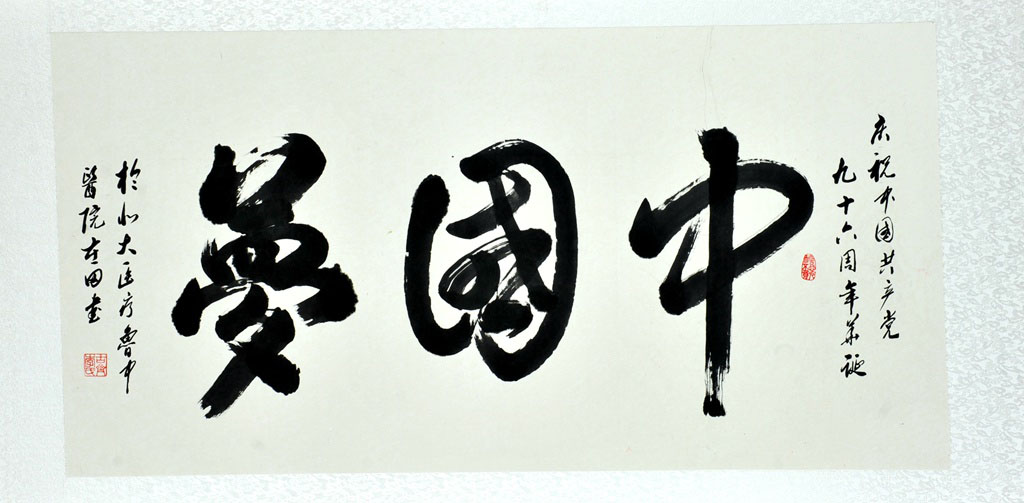 庆祝中国共产党
九十六周年华诞
中國夢
於北大医疗鲁中
醫院左田书